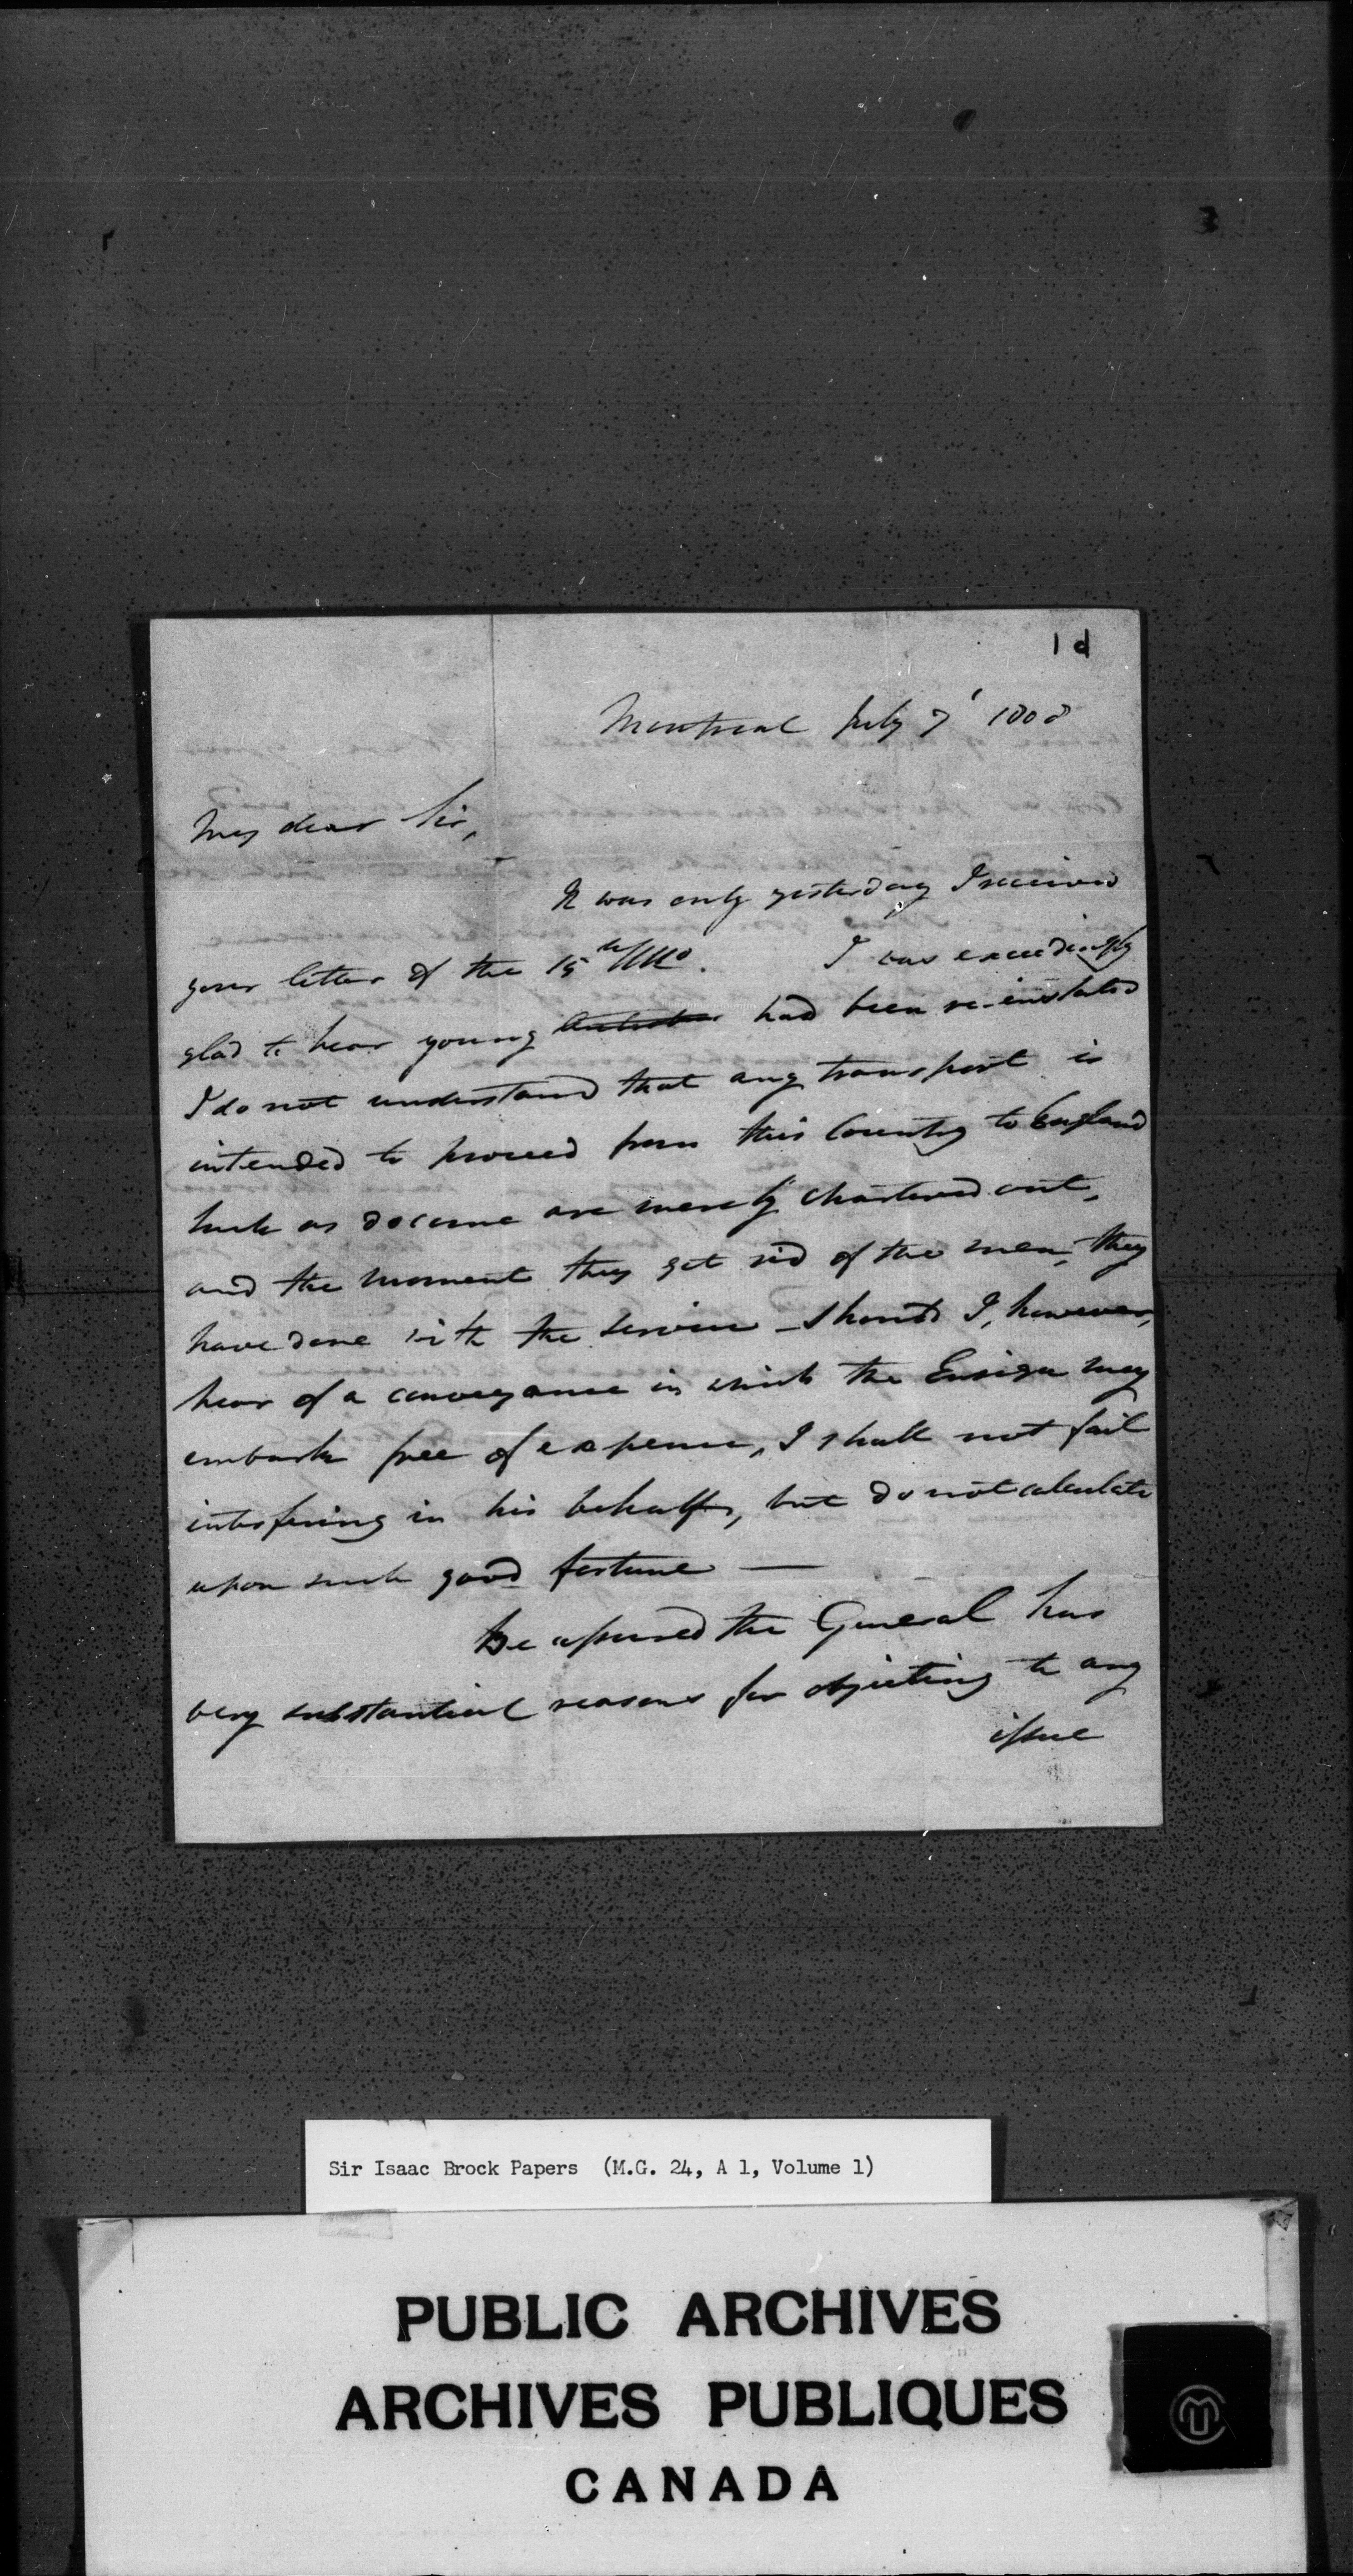 1 d
Montreal July 7' 1808
My dear Sir,
It was only yesterday I received
your letter of the 15th Ulto. I was exceedingly
glad to hear young had been re-instated
I do not understand that any transport is
intended to proceed from this Country to England
Such as do come are merely chartered out,
and the moment they get rid of the men, they
have done with the service - Should I, however,
hear of a conveyance in which the Ensign may
embark free of expense, I shall not fail
interfering in his behalf, but do not calculate
upon such good fortune —
Be assured the General has
very substantial reasons for objecting to any
issue
Sir Isaac Brock Papers (M.G. 24, A 1, Volume 1)
PUBLIC ARCHIVES
ARCHIVES PUBLIQUES
CANADA